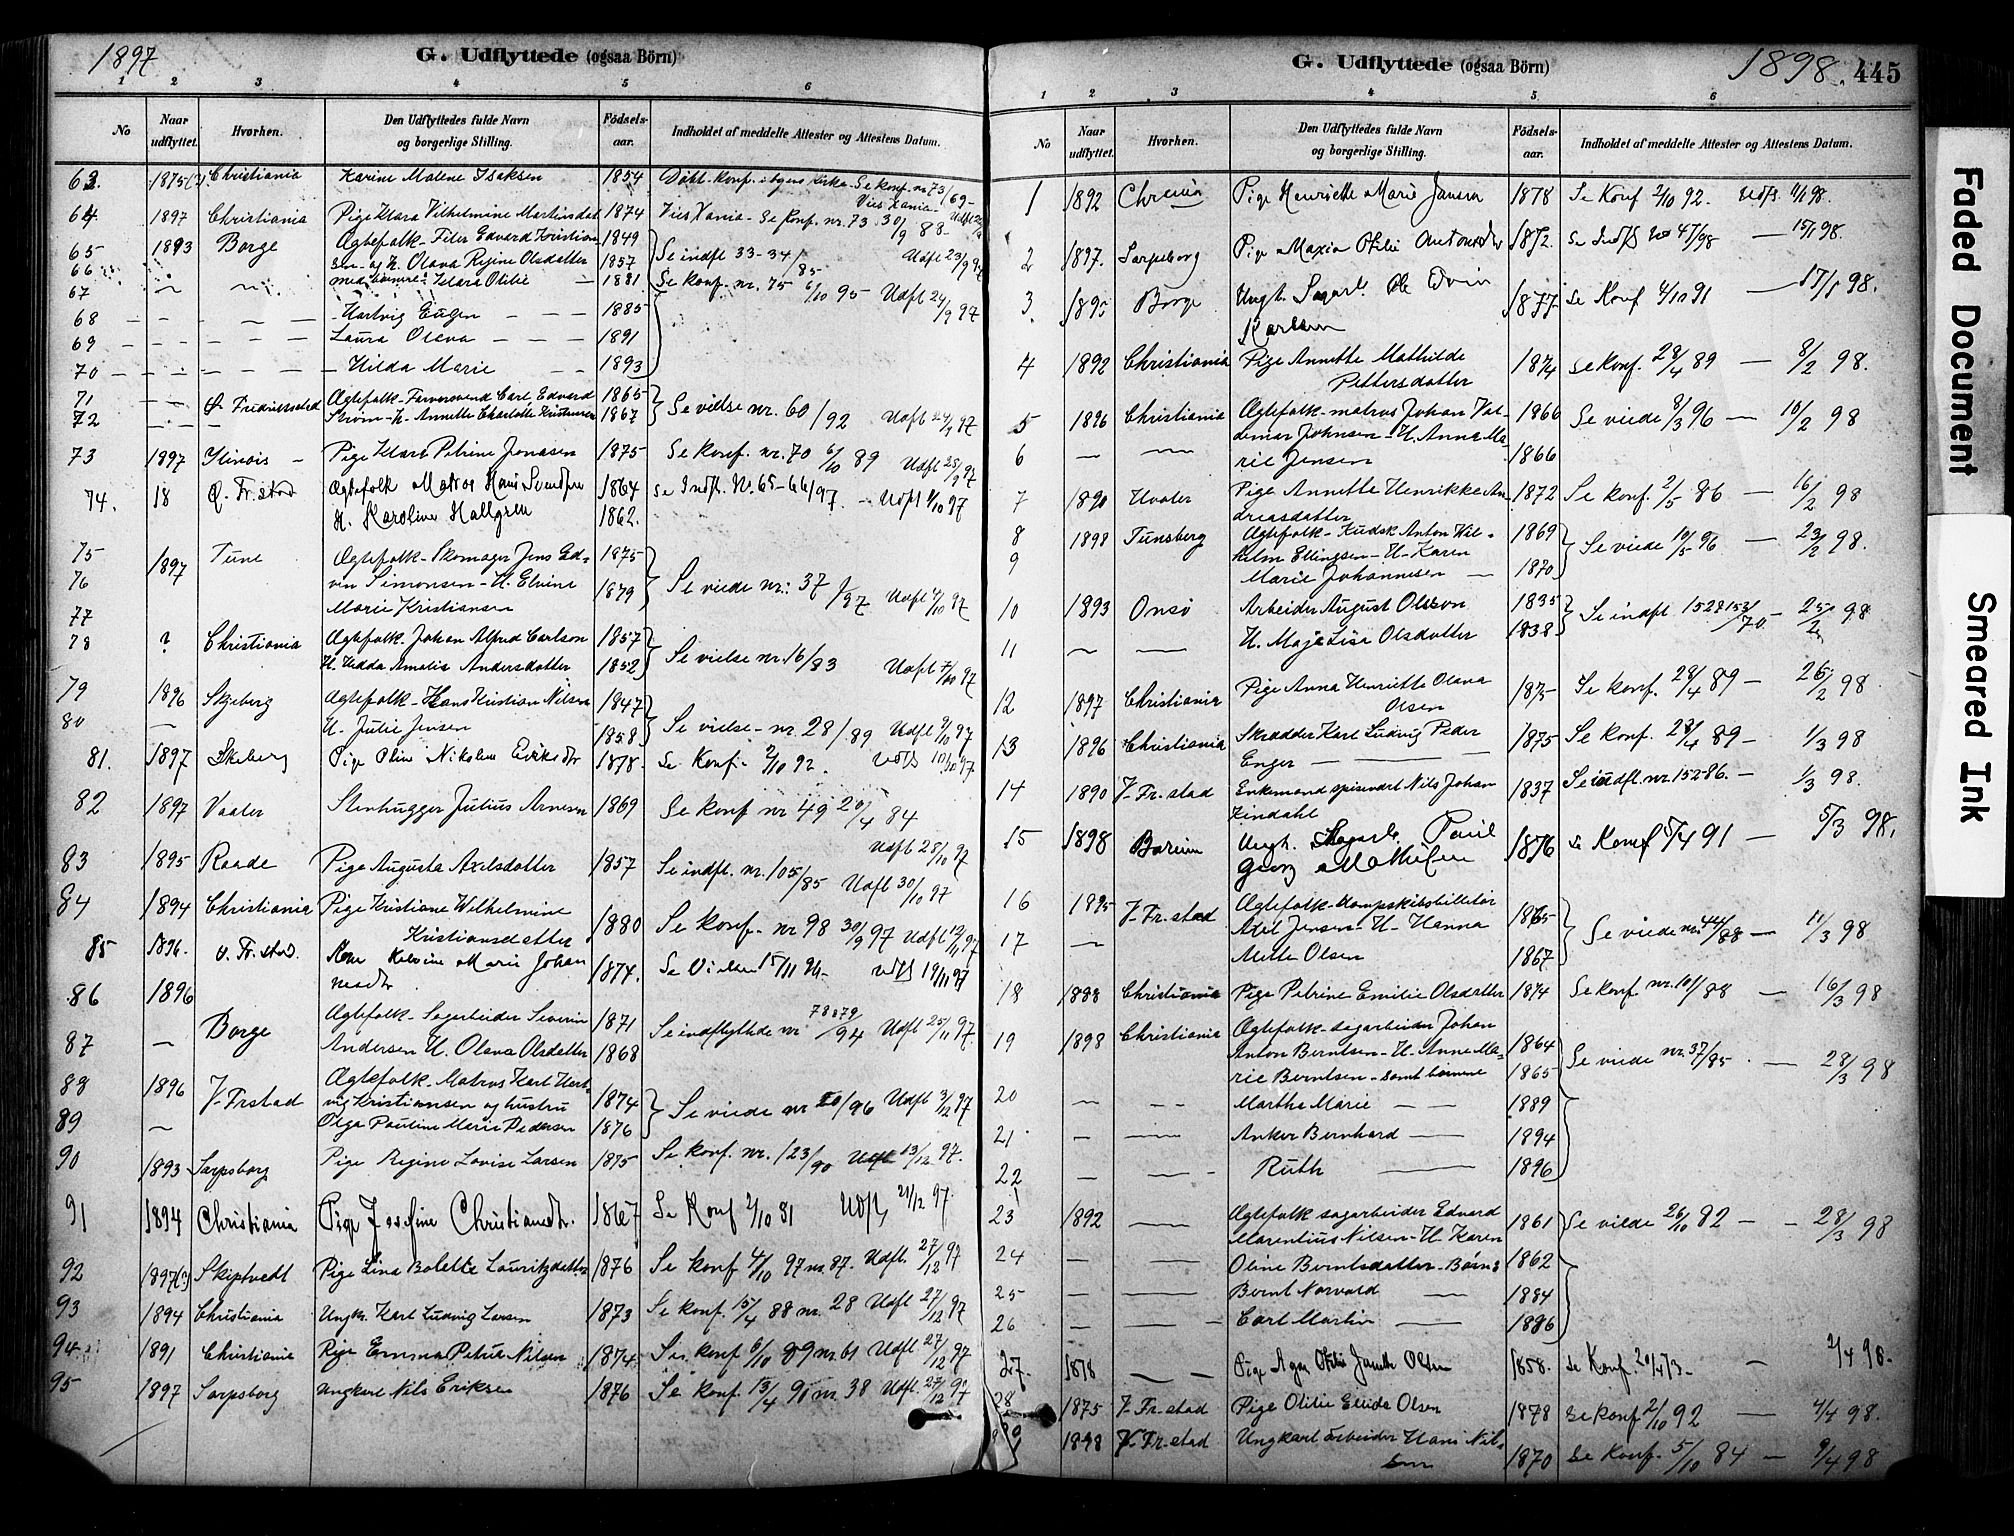 1897
G. Udflyttede (ogsaa Börn)
1 2 3 4 5 6
No Naar udflyttet. Hvorhen. Den Udflyttedes fulde Navn og borgerlige Stilling. Födsels-aar. Indholdet af meddelte Attester og Attestens Datum.
63. 1875(?) Christiania Karine Malene Isaksen 1854 Döbt- konf. i byens kirke. Se konf. nr 73/69-
64 1897 Christiania Pige Klara Vilhelmine Martinsdat 1874 Vies Xania- Se konf. nr. 73 30/9 88-
65 1893 Borge Ægtefolk- Peter Edvard Kristian 1849
66 sen- og H. Olava Regine Olsdatter 1857 Se indfl 33-34/85- Udfl 23/9 97
67 med børnene- Klara Otilie 1881 Se konf. nr. 75 6/10 95 Udfl 24/9 97
68 - - - Hartvig Eugen - - 1885
69 - - - Laura Olava - - 1891
70 - - - Hilda Marie - - 1893
71 - - Ø. Fredriksstad Ægtefolk- Farversvend Carl Edvard 1865
72 Strøm- H. Annette Charlotte Kristiansen 1867 Se vielse nr. 60/92 Udfl 24/9 97
73 1897 Ilinois - Pige Klara Petrine Jonasen 1875 Se konf. nr. 70 6/10 89 Udfl 25/9 97
74. 18 Ø. Fr.stad Ægtefolk Matros Hans Svendsen 1864 se Indfl. N. 65-66/97 - Udfl 1/10 97
H. Karoline Hallgren 1862.
75 1897 Tune Ægtefolk- Skomager Jens Ed- 1875
76 vin Simonsen- H. Elvine 1879 Se viede nr: 37/97 Udfl 4/10 97
77 Marie Kristiansen
78 ? Christiania Ægtefolk. Johan Alfred Carlson 1857
H. Hedda Amalia Andersdatter 1852 Se vielse nr. 16/83 Udfl 7/10 97
79 1896 Skjeberg Ægtefolk- Hans Kristian Nilsen 1847
80 - H. Julie Jensen 1858 Se vielse- nr. 28/89 Udfl 9/10 97
81. 1897 Skeberg Pige Oline Nikoline Eriksdtr 1878. Se Konf. 2/10 92. Udfl 11/10 97
82 1897 Vaaler Stenhugger Julius Arnesen 1869 Se konf nr 49 20/4 84
Udfl 28/10 97
83 1895 Raade Pige Augusta Axelsdatter 1857 Se indfl. nr. 105/85 Udfl 30/10 97
84 1894 Christiania Pige Kristiane Wilhelmine
Kristiansdatter 1880 Se konf.- nr 98 30/9 97 Udfl 19/11 97
85 1896. V. Fr. stad. Kone Kalvine Marie Johan 1874. Se Vielsen 15/11 96- Udfl 19/11 97
86 1896 Borge Ægtefolk- Sagarbeider Severin 1871 Se indflyttede nr 78 & 79/94 Udfl 25/11 97
87 - Andersen H. Olava Olsdatter 1868
88 1896 V-Frstad Ægtefolk- Matros Karl Hart-
vig Kristiansen og hustru 1874 Se viede nr 20/96 Udfl 3/12 97
89 - Olga Pauline Marie Pedersen 1876
90 1893 Sarpsborg Pige Regine Lovise Larsen 1875 Se konf. nr. 123/90 Udfl 13/12 97.
91 1894 Christiania Pige Josefine Christiansdtr. 1867 Se Konf 2/10 81 Udfl 21/12 97.
92 1897(?) Skiptvedt Pige Lina Bolette Lauritzdatter 1876 Se konf 4/10 97 nr. 87. Udfl. 27/12 97
93 1894 Christiania Ungk. Karl Ludvig Larsen 1873 Se konf. 15/4 88 nr. 28 Udfl 27/12 97
94 1891 Christiania Pige Emma Petrea Nilsen 1874 Se konf 6/10 89 nr. 61 Udfl 27/12 97
95 1897 Sarpsborg Ungkarl Nils Eriksen 1876 Se konf. 13/4 91 nr. 38 Udfl. 27/12 97
G. Udflyttede (ogsaa Börn)
1898. 445
1 2 3 4 5 6
No Naar udflyttet. Hvorhen. Den Udflyttedes fulde Navn og borgerlige Stilling. Födsels-aar. Indholdet af meddelte Attester og Attestens Datum.
1 1892 Chrania Pige Henriette Marie Jansen 1878 Se Konf 2/10 92. Udfl.
2 1897. Sarpsborg Pige Maxia Otilie Antonsdtr 1872. Se Indfl No 47/98 - 15/1 98.
3. 1895 Borge Ungk. Sagarb. Ole Edvin 1877. Se Konf 4/10 91 - 17/1 98.
Karlsen
4 1892 Christiania Pige Annette Mathilde 1874 Se konf. 28/4 89 - 8/2 98.
Pettersdatter
5 1896 Christiania Ægtefolk- matros Johan Val- 1866 Se viede 8/3 96 - 16/2 98
demar Johnsen- H. Anna Ma-
6 - - rie Jensen 1866
7 1890 Hvaler Pige Annette Henrikke An- 1872 Se konf. 2/5 86 - 16/2 98
dreasdatter
8 1898 Tunsberg Ægtefolk- Kudsk Anton Wil- 1869
9 helm Ellingsen- H- Karen Se viede 10/5 96 - 23/2 98.
Marie Johannesen - 1870
10 1893 Onsö Arbeider August Olsson 1835 Se indfl 152 & 153/70 - 25/2 98
11 - - H. Maja Lisa Olsdatter 1838
12 1897 Christiania Pige Anna Henriette Olava 1875 Se konf. 28/4 89 - 26/2 98
Olsen
13 1896 Christiania Skrædder Karl Ludvig Peder 1875 Se konf. 28/4 89- 1/3 98
Enger - -
14 1890 V-Fr.stad Enkemand spisevært Nils Johan 1837 Se indfl. nr. 152-86. - 1/3 98.
Lindahl
15 1898 Bærum Ungk. Sagarb. Paul 1876 se Konf 5/4 91 - 5/3 98.
Georg Mathisen
16 1895 V-Fr.stad Ægtefolk- dampskibsbilletør
Axel Jensen- H- Hanna 1865 Se viede nr. 44/88 - 11/3 98
17 - Mette Olsen 1867
18 1888 Christiania Pige Petrine Emilie Olsdatter 1874 Se konf. nr. 101/88 - 16/3 98
19 1898 Christiania Ægtefolk- sagarbeider Johan
Anton Berntsen- H- Anne Ma- 1864 Se viede nr. 37/85 - 28/3 98
rie Berntsen- samt børnene 1865
20 - - - Martha Marie - - 1889
21 - - Anker Bernhard - 1894
22 - - - Ruth - 1896
23 1892 - Ægtefolk sagarbeider Edvard 1861 Se vielde 26/10 82 - - 28/3 98
Marentius Nilsen- H. Karen
24 - - Oline Berntsdatter- Børn: 1862
25 - - Bernt Norvald - 1884
26 - - - Carl Martin - 1886
27. 1878 - - Pige Otilie Olsen 1858. Se Konf. - 2/4 98.
28 1875 V-Fr-stad Pige Otilie Elida Olsen 1878 Se konf 2/10 92 - 4/4 98.
1898 V-Fr-stad Ungkarl arbeider Hans Nil- 1870 Se Konf. 5/10 84 - 9/4 98
sen
Faded Document
Smeared Ink